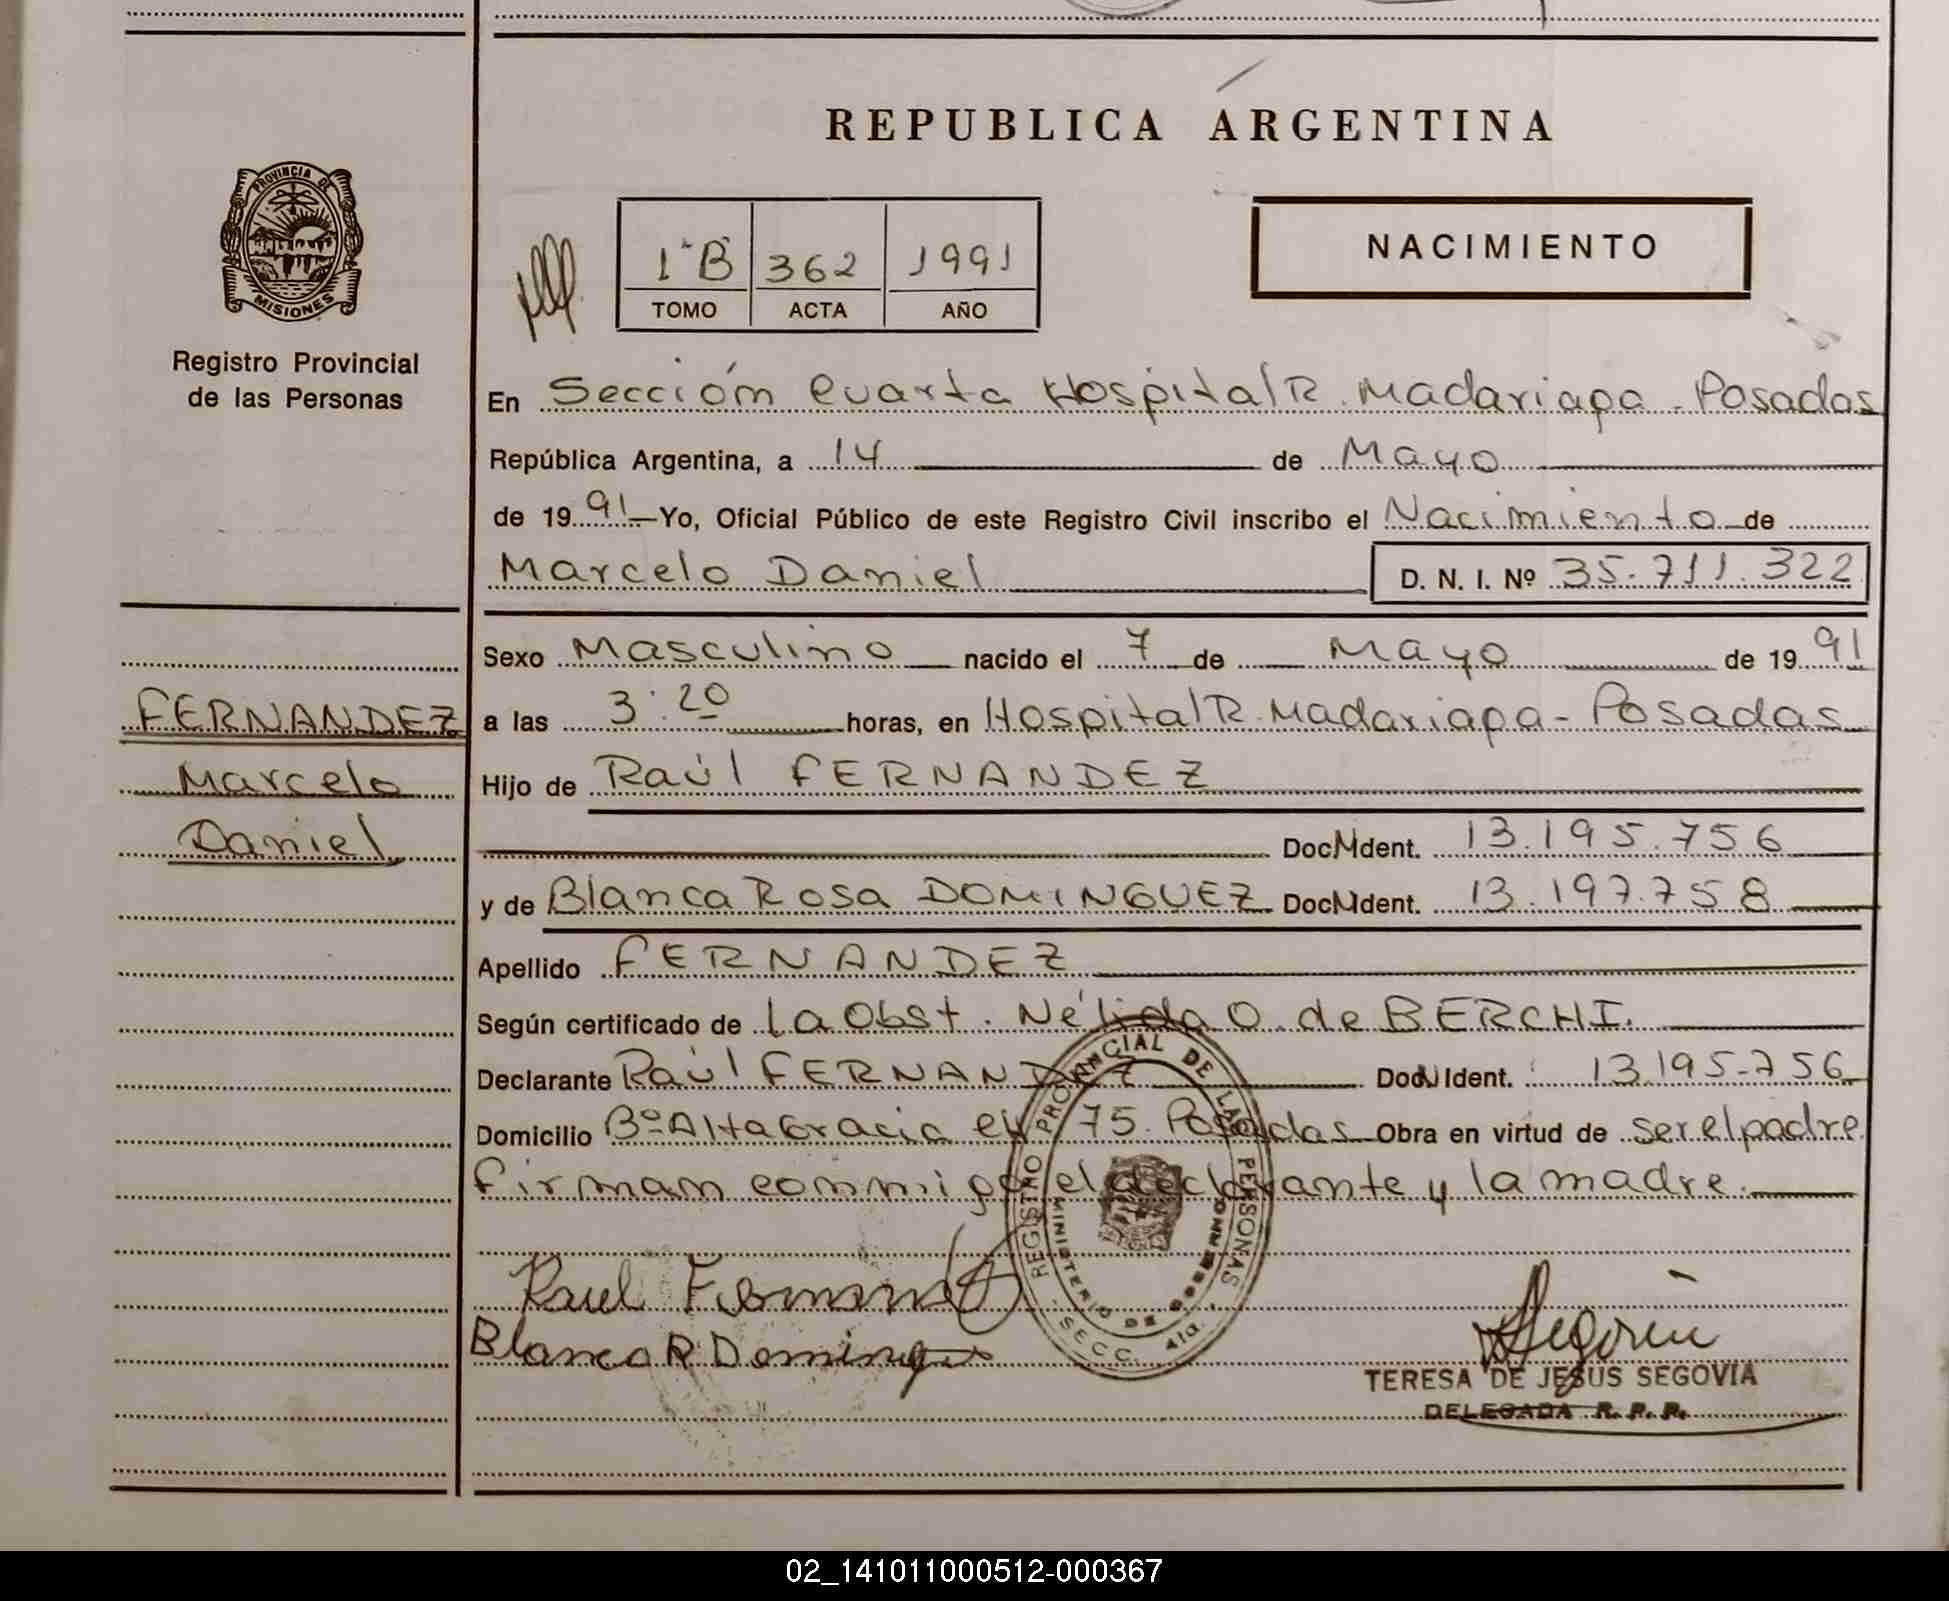 REPUBLICA ARGENTINA
PROVINCIA DE
MISIONES
Registro Provincial
de las Personas
1°"B" 362 1991
TOMO ACTA AÑO
NACIMIENTO
En Sección Cuarta Hospital R. Madariaga - Posadas
República Argentina, a 14 de Mayo
de 1991 Yo, Oficial Público de este Registro Civil inscribo el Nacimiento de
Marcelo Daniel D. N. I. Nº 35.711.322
Sexo Masculino nacido el 7 de Mayo de 1991
FERNANDEZ
Marcelo
Daniel
a las 3:20 horas, en Hospital R. Madariaga - Posadas
Hijo de Raúl FERNANDEZ
Doc. Ident. 13.195.756
y de Blanca Rosa DOMINGUEZ Doc. Ident. 13.197.758
Apellido FERNANDEZ
Según certificado de la Obst. Nélida O. de BERCHI.
Declarante Raúl FERNANDEZ Doc. Ident. 13.195.756
Domicilio Bº Alta Gracia 75. Posadas Obra en virtud de ser el padre
firman conmigo el declarante y la madre.
REGISTRO PROVINCIAL DE LAS PERSONAS
MINISTERIO DE GOBIERNO
SECC. 4ta.
Raul Fernandez
Blanca R Dominguez
Segovia
TERESA DE JESUS SEGOVIA
DELEGADA R. P. P.
02_141011000512-000367